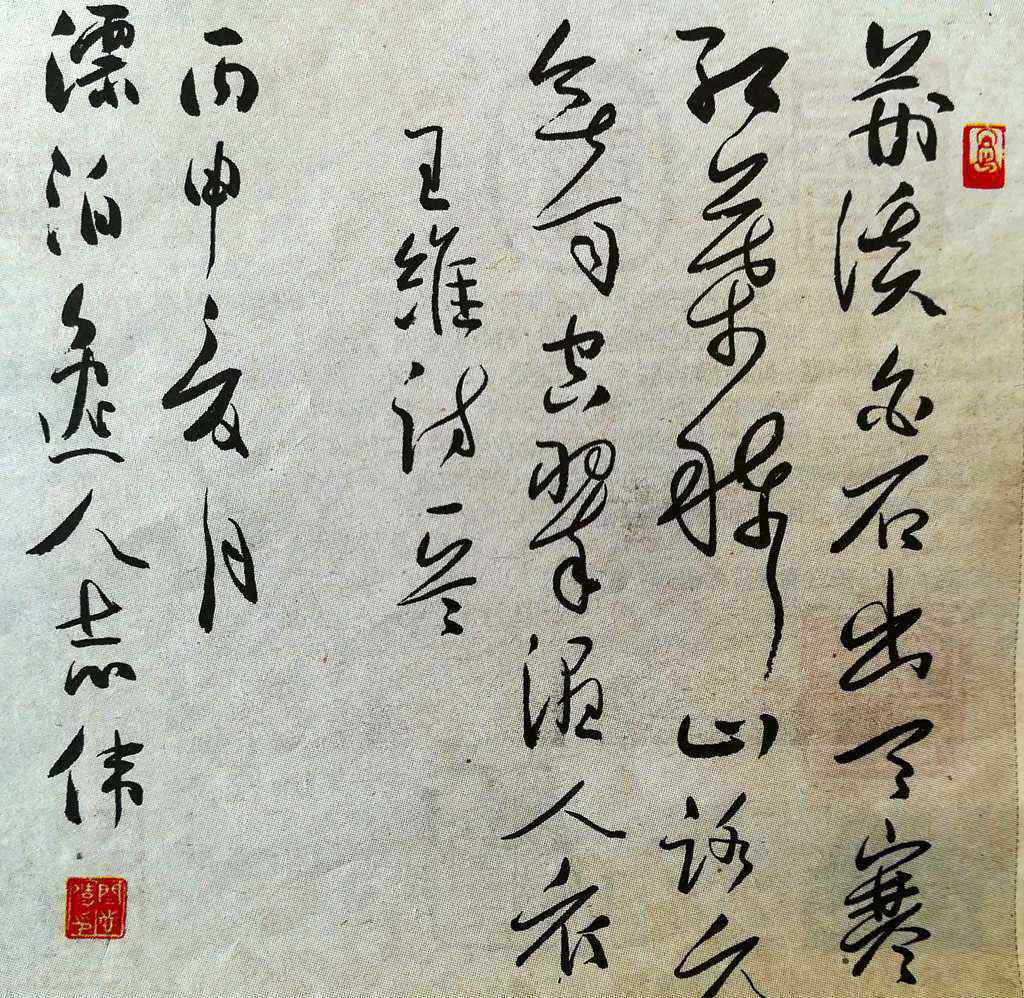 荆溪白石出天寒
红葉稀山路元
無雨空翠濕人衣
王維诗一首
丙申夏月
漂泊逸人志伟